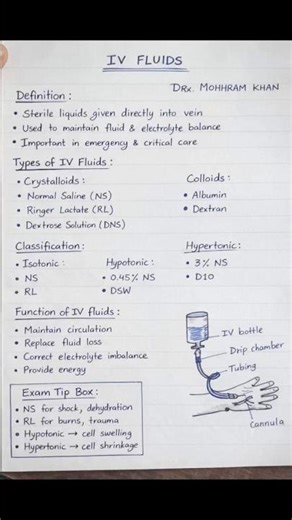 IV FLUIDS
DRx. MOHHRAM KHAN
Definition :
• Sterile liquids given directly into vein
• Used to maintain fluid & electrolyte balance
• Important in emergency & critical care
Types of IV Fluids :
• Crystalloids :
• Normal Saline (NS)
• Ringer Lactate (RL)
• Dextrose Solution (DNS)
Colloids :
• Albumin
• Dextran
Classification :
• Isotonic :
• NS
• RL
Hypotonic :
• 0.45% NS
• D5W
Hypertonic :
• 3% NS
• D10
Function of IV fluids :
• Maintain circulation
• Replace fluid loss
• Correct electrolyte imbalance
• Provide energy
IV bottle
Drip chamber
Tubing
Cannula
Exam Tip Box :
• NS for shock, dehydration
• RL for burns, trauma
• Hypotonic → cell swelling
• Hypertonic → cell shrinkage